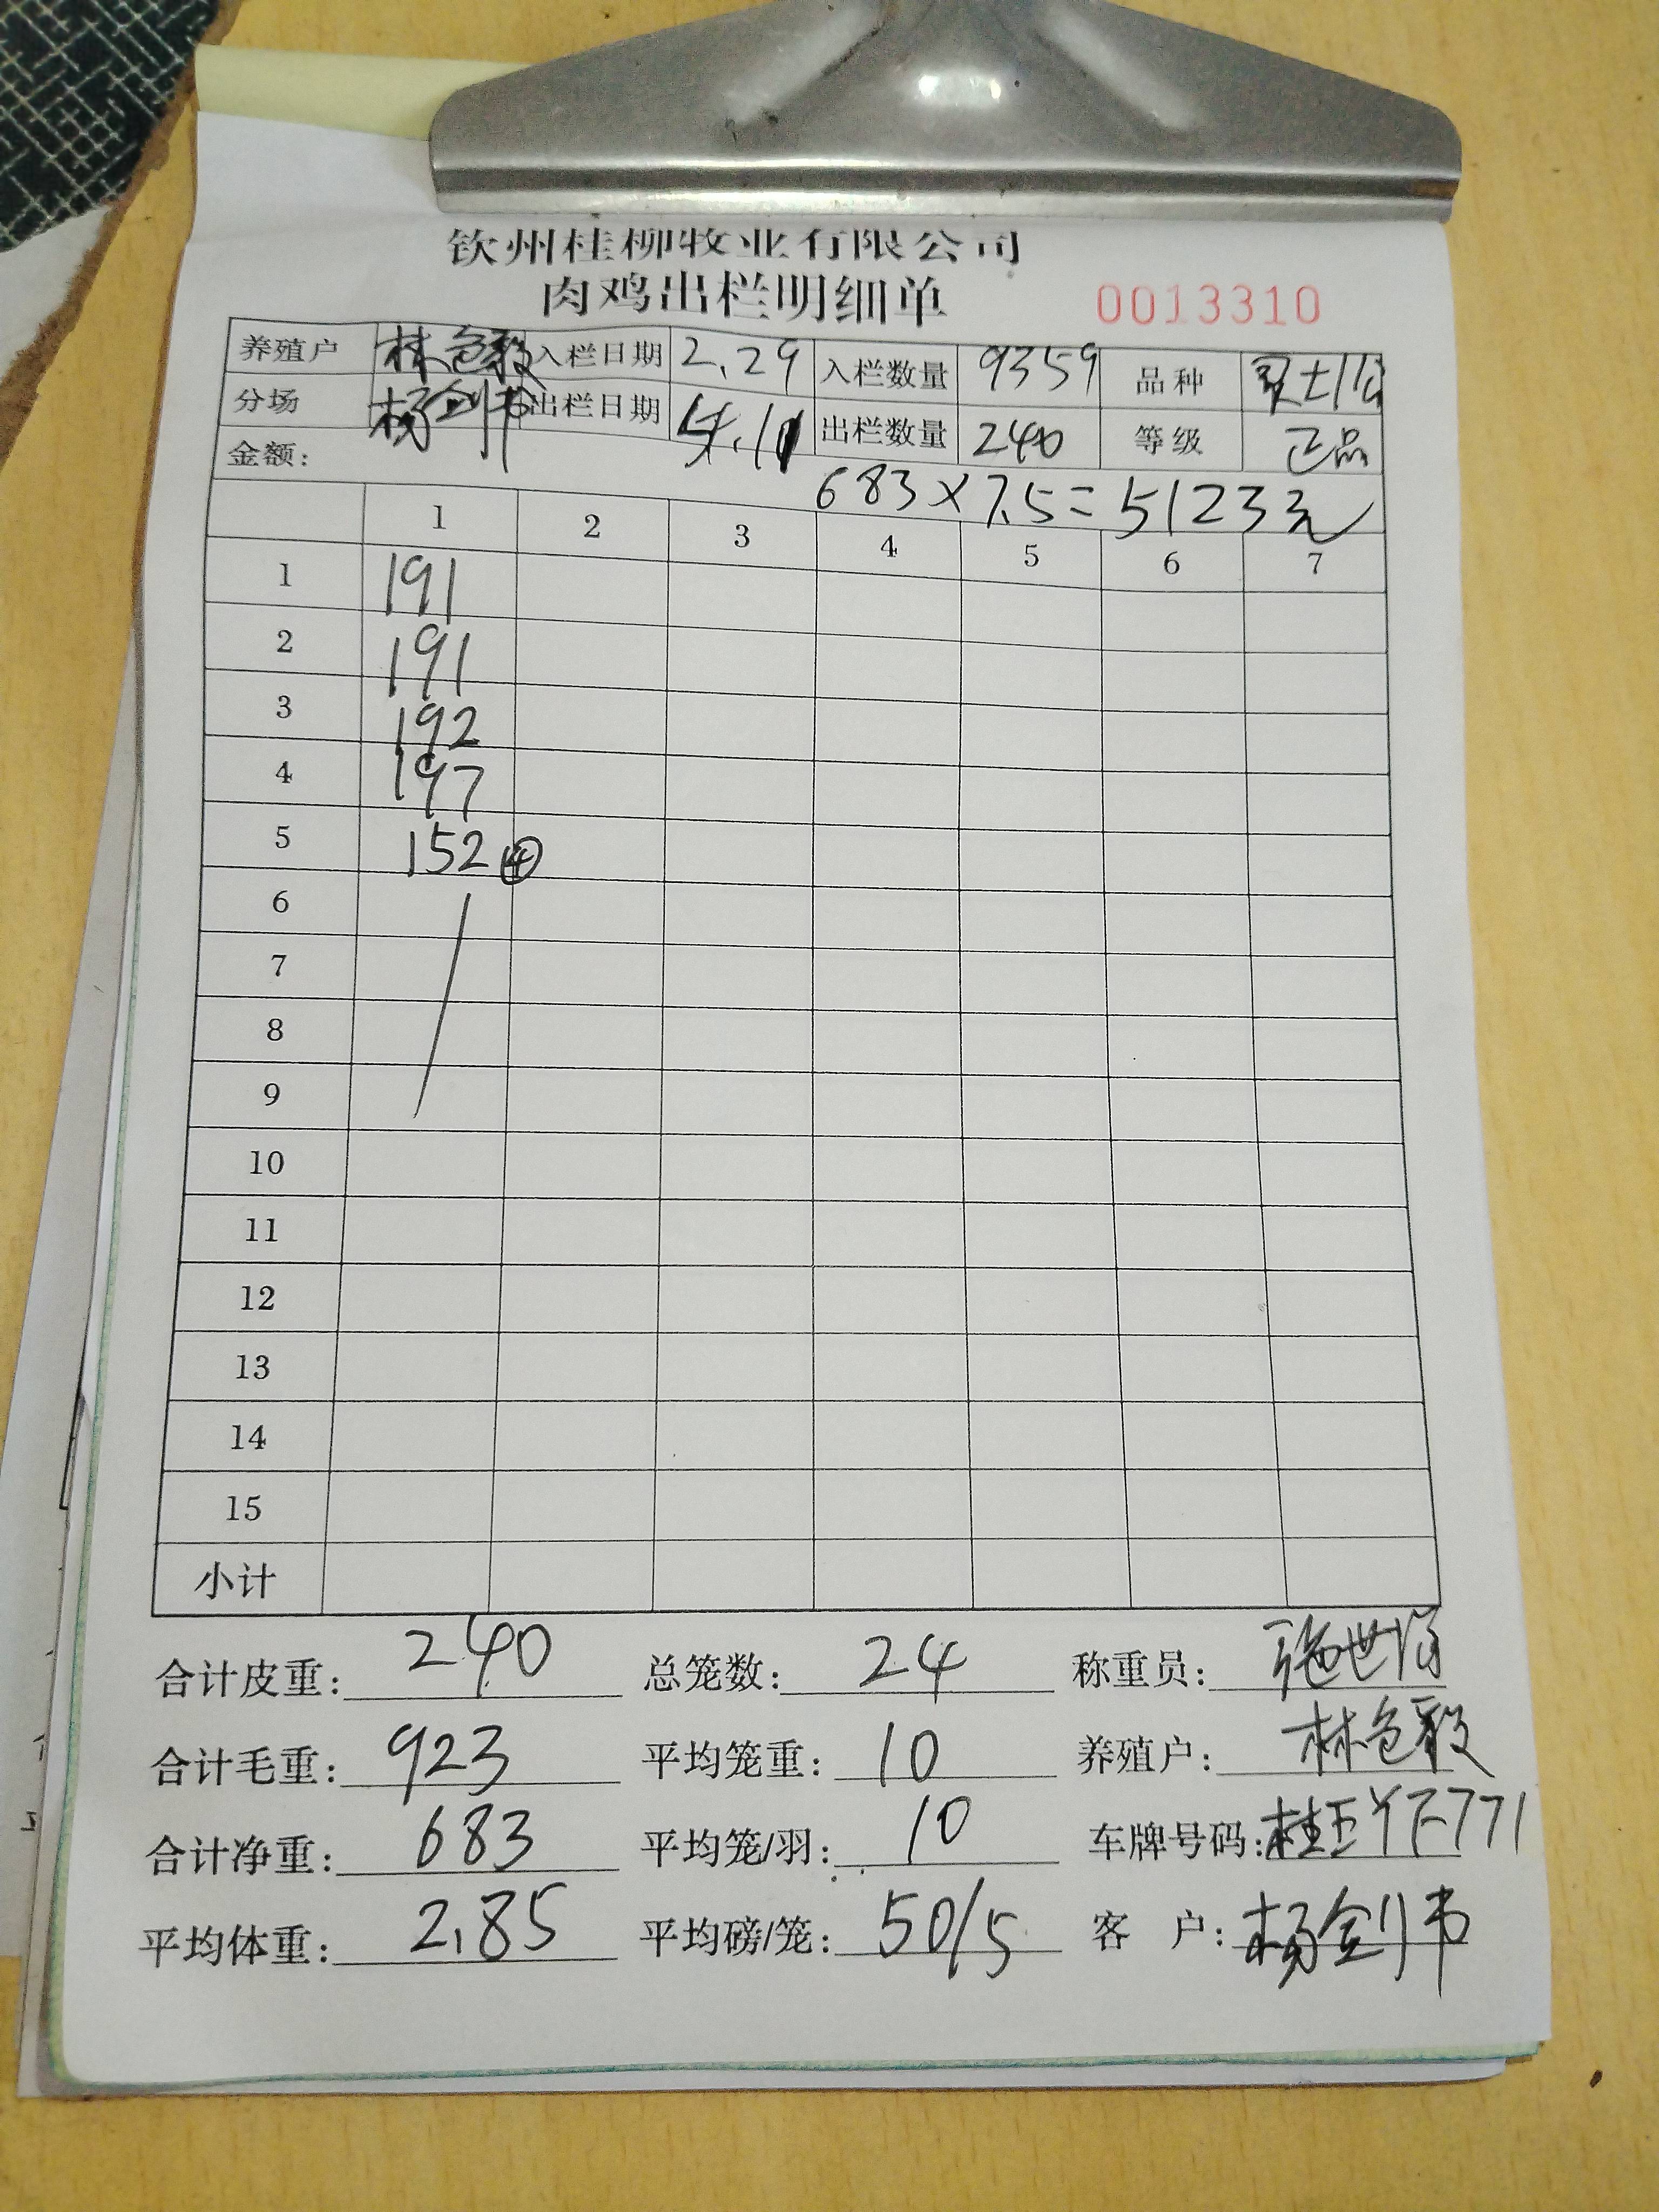 钦州桂柳牧业有限公司
肉鸡出栏明细单 0013310
养殖户 林色毅 入栏日期 2.29 入栏数量 9359 品种
分场 杨剑书 出栏日期 出栏数量 240 等级 正品
金额: 683×7.5=5123元
1 2 3 4 5 6 7
1 191
2 191
3 192
4 197
5 152 ④
6
7
8
9
10
11
12
13
14
15
小计
合计皮重: 240 总笼数: 24 称重员:
合计毛重: 923 平均笼重: 10 养殖户: 林色毅
合计净重: 683 平均笼/羽: 10 车牌号码:
平均体重: 2.85 平均磅/笼: 50/5 客 户: 杨剑书